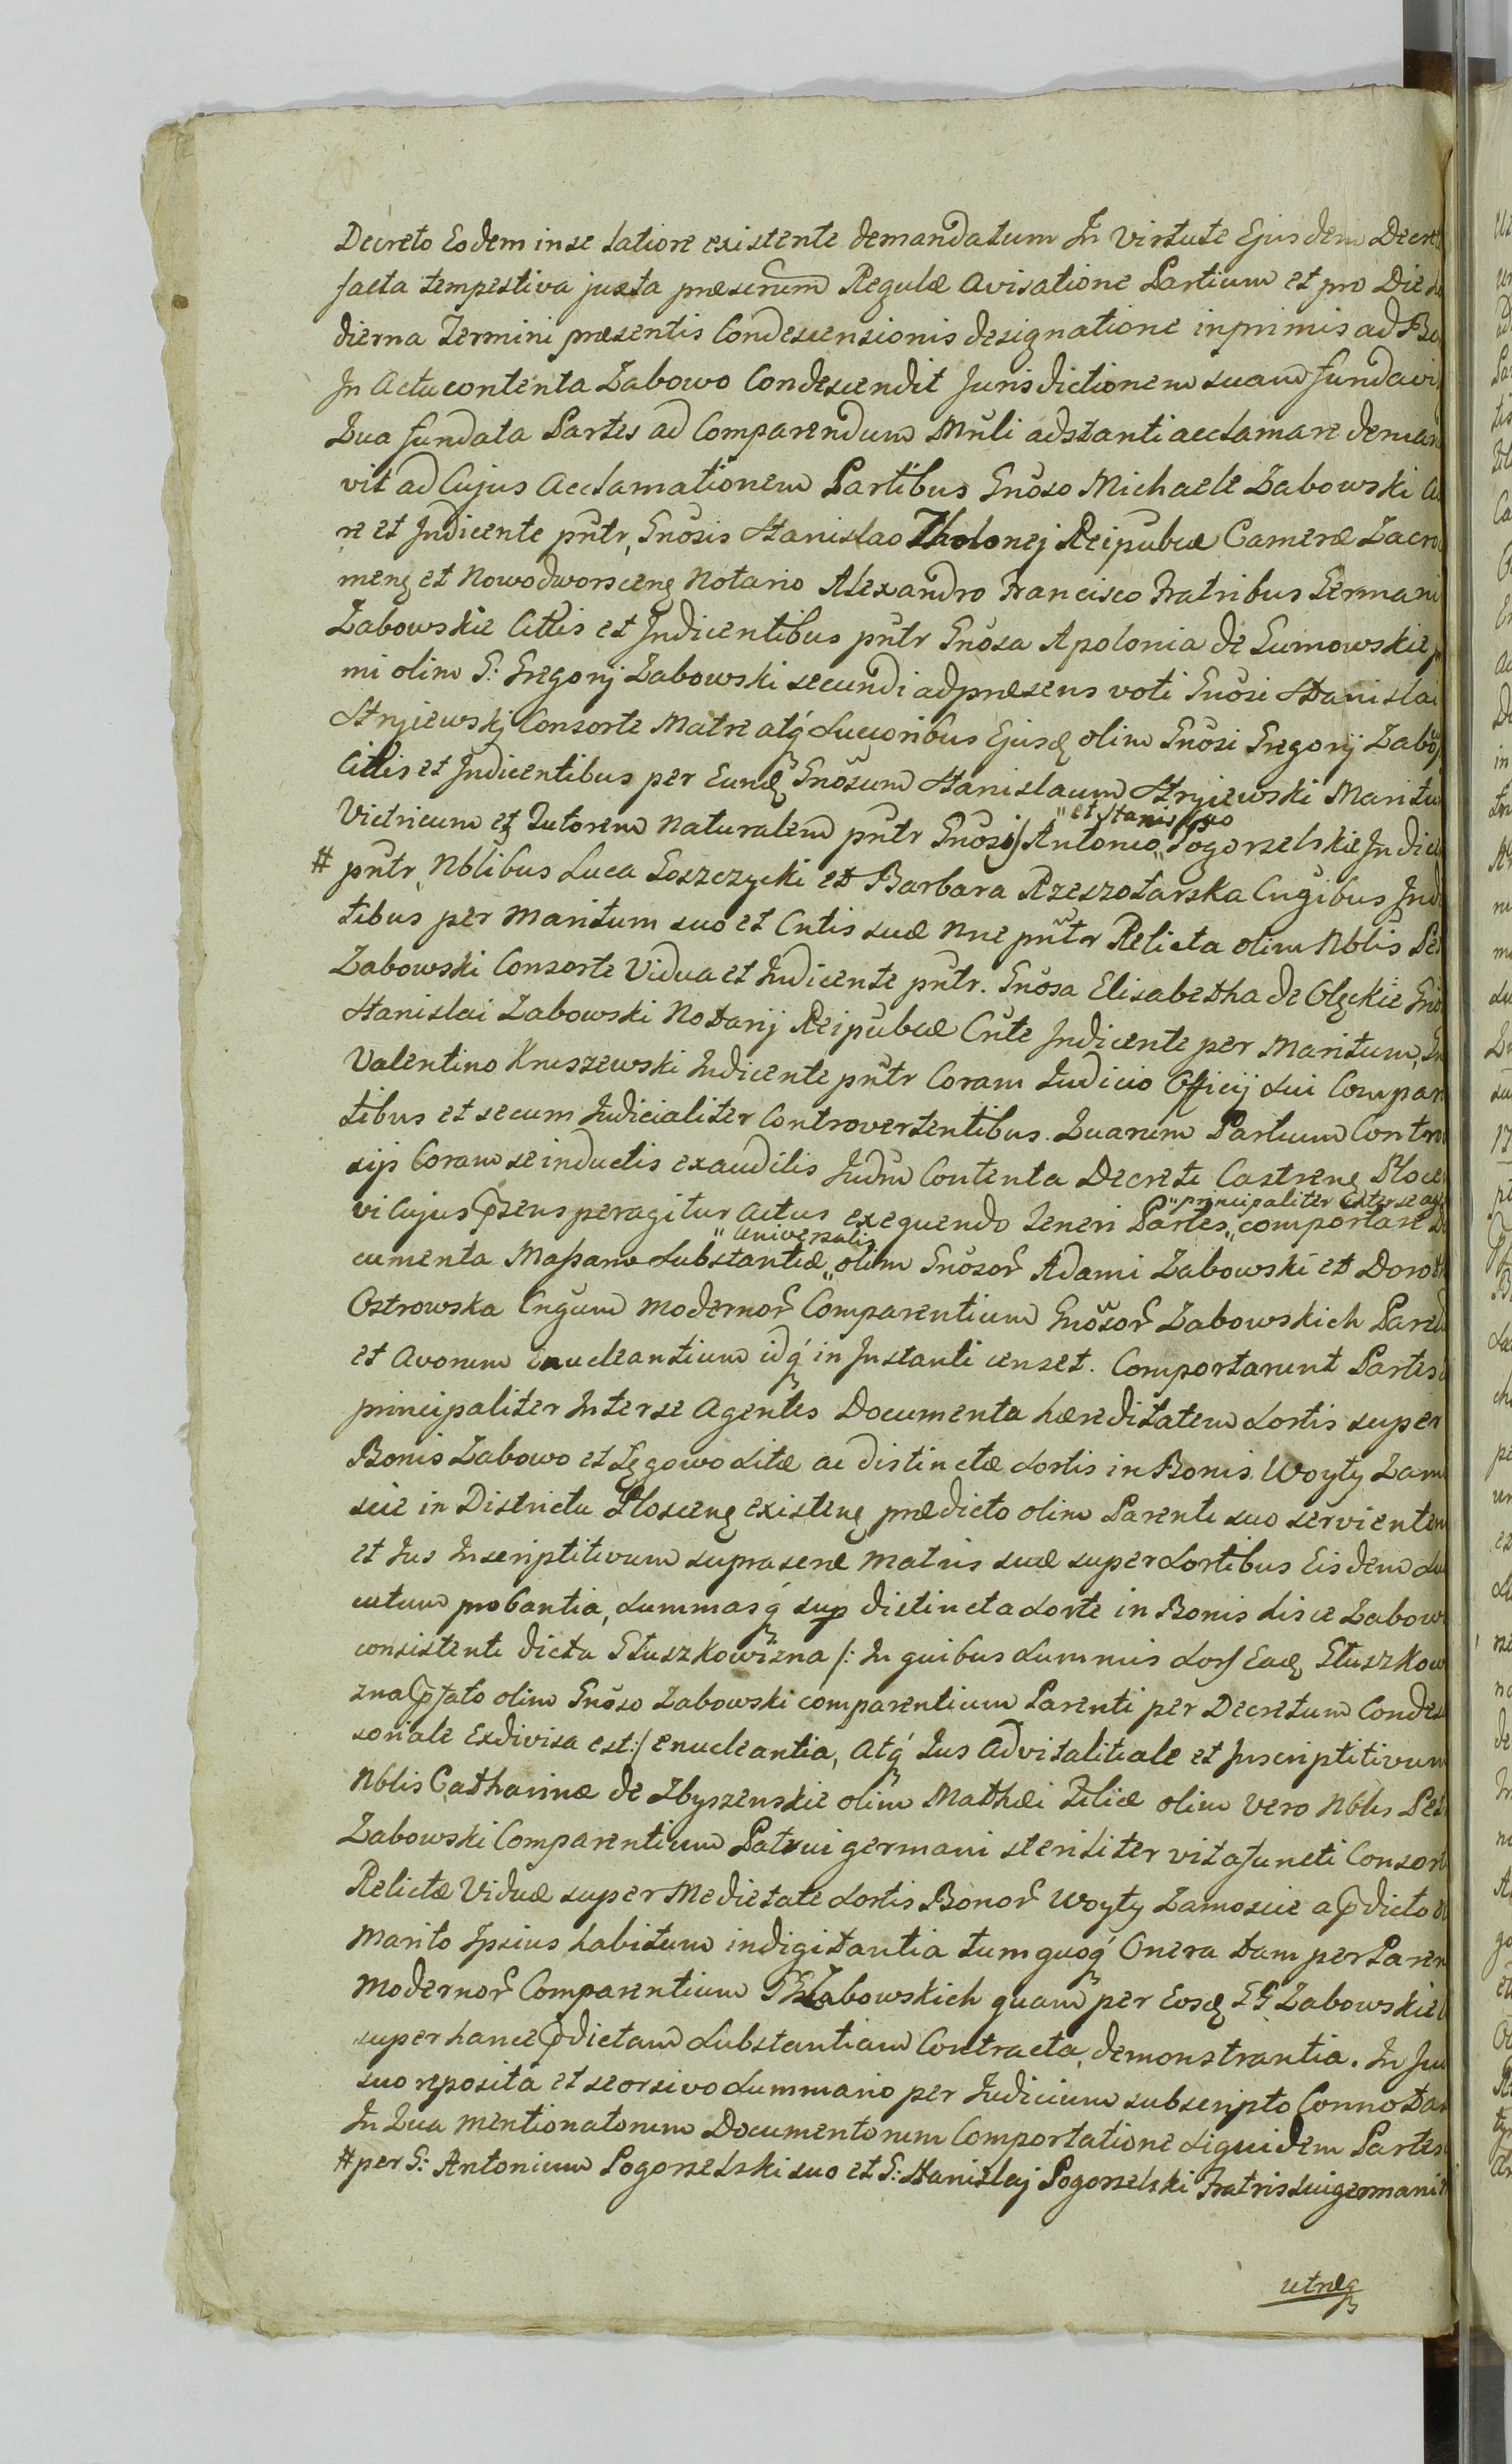 Decreto Eodem in se latiore existente demandatum In Virtute Ejusdem Decret
facta tempestiva juxta præscrum Regulæ Avisatione Partium et pro Die ho
dierna Termini præsentis Condescensionis designatione inprimis ad Bo
In Actu contenta Zabowo Condescendit Jurisdictionem suam fundavi
Qua fundata Partes ad Comparendum Mnli adstanti acclamare deman
vit ad Cujus Acclamationem Partibus Gnoso Michaele Zabowski A
re et Indicente pntr, Gnosis Stanislao Tholonej Reipubcæ Cameræ Zacro
meng et Nowodworsceng Notario Alexandro Francisco Fratribus Germani
Zabowskie Cittis et Indicentibus pntr Gnosa Apolonia de Gumowskie p
mi olim G: Gregorij Zabowski secundi ad præsens voti Gnosi Stanislai
Stryiewskj Consorte Matre atq́ Succoribus Ejusd olim Gnosi Gregorij Zabo
Cittis et Indicentibus per Eund Gnosum Stanislaum Stryiewski Maritu
Victricum et Tutorem naturalem pntr Gnosis Antonio "et Stanislao" Pogorzelskie Indice
# pntr, Nblibus Luca Goszczycki et Barbara Rzeszotarska Cngibus Indi
tibus per Maritum suo et Cntis suæ nne pntr Relicta olim Nblis Pet
Zabowski Consorte Vidua et Indicente pntr. Gnosa Elisabetha de Olęckie Gno
Stanislai Zabowski Notarij Reipubcæ Cnte Indicente per Maritum, Gn
Valentino Kruszewski Indicente pntr Coram Iudicio Officij sui Compar
tibus et secum Iudicialiter Controvertentibus. Quarum Partium Contro
sijs Coram se inductis exauditis Iudm Contenta Decreti Castreng Ploce
vi Cujus psens peragitur Actus exequendo teneri Partes "principaliter inter se age" comportare Do
cumenta Massam Substantiæ "universalis" olim Gnosor Adami Zabowski et Doroth
Ostrowska Cngum modernor Comparentium Gnosor Zabowskich Paren
et Avorum enucleantium idq́ in Instanti censet. Comportarunt Partes
principaliter Inter se Agentes Documenta hæreditatem Sortis super
Bonis Zabowo et Lęgowo Sitæ ac distinctæ Sortis in Bonis Woyty Zam
scie in Districtu Plosceng existeng prædicto olim Parenti suo servientem
et Ius Inscriptitivum suprascræ Matris suæ super Sortibus Eisdem Su
cutum probantia, Summasq́ sup distincta Sorte in Bonis hisce Zabow
consistenti dicta Głuszkowizna /: In quibus Summis Sors Ead Głuszkow
zna pfato olim Gnoso Zabowski comparentium Parenti per Decretum Condes
soriale Exdivisa est:/ enucleantia, Atq́ Ius Advitalitiale et Inscriptitivum
Nblis Catharinæ de Zbyszenskie olim Mathæi Filiæ olim vero Nblis Pet
Zabowski Comparentium Patrui germani steriliter vita functi Consort
Relictæ Viduæ super Medietate Sortis Bonor Woyty Zamoscie a pdicto o
Marito Ipsius habitum indigitantia tum quoq́ Onera tam per Paren
modernor Comparentium GG Zabowskich quam per Eosd GG Zabowskic
super hance pdictam Substantiam Contracta, demonstrantia. In Iu
suo reposita et seorsivo Summario per Iudicium subscripto Connota
In Qua mentionatorum Documentorum Comportatione siquidem Partes
# per G: Antonium Pogorzelski suo et G: Stanislaj Pogorzelski Fratris sui germani
utræq